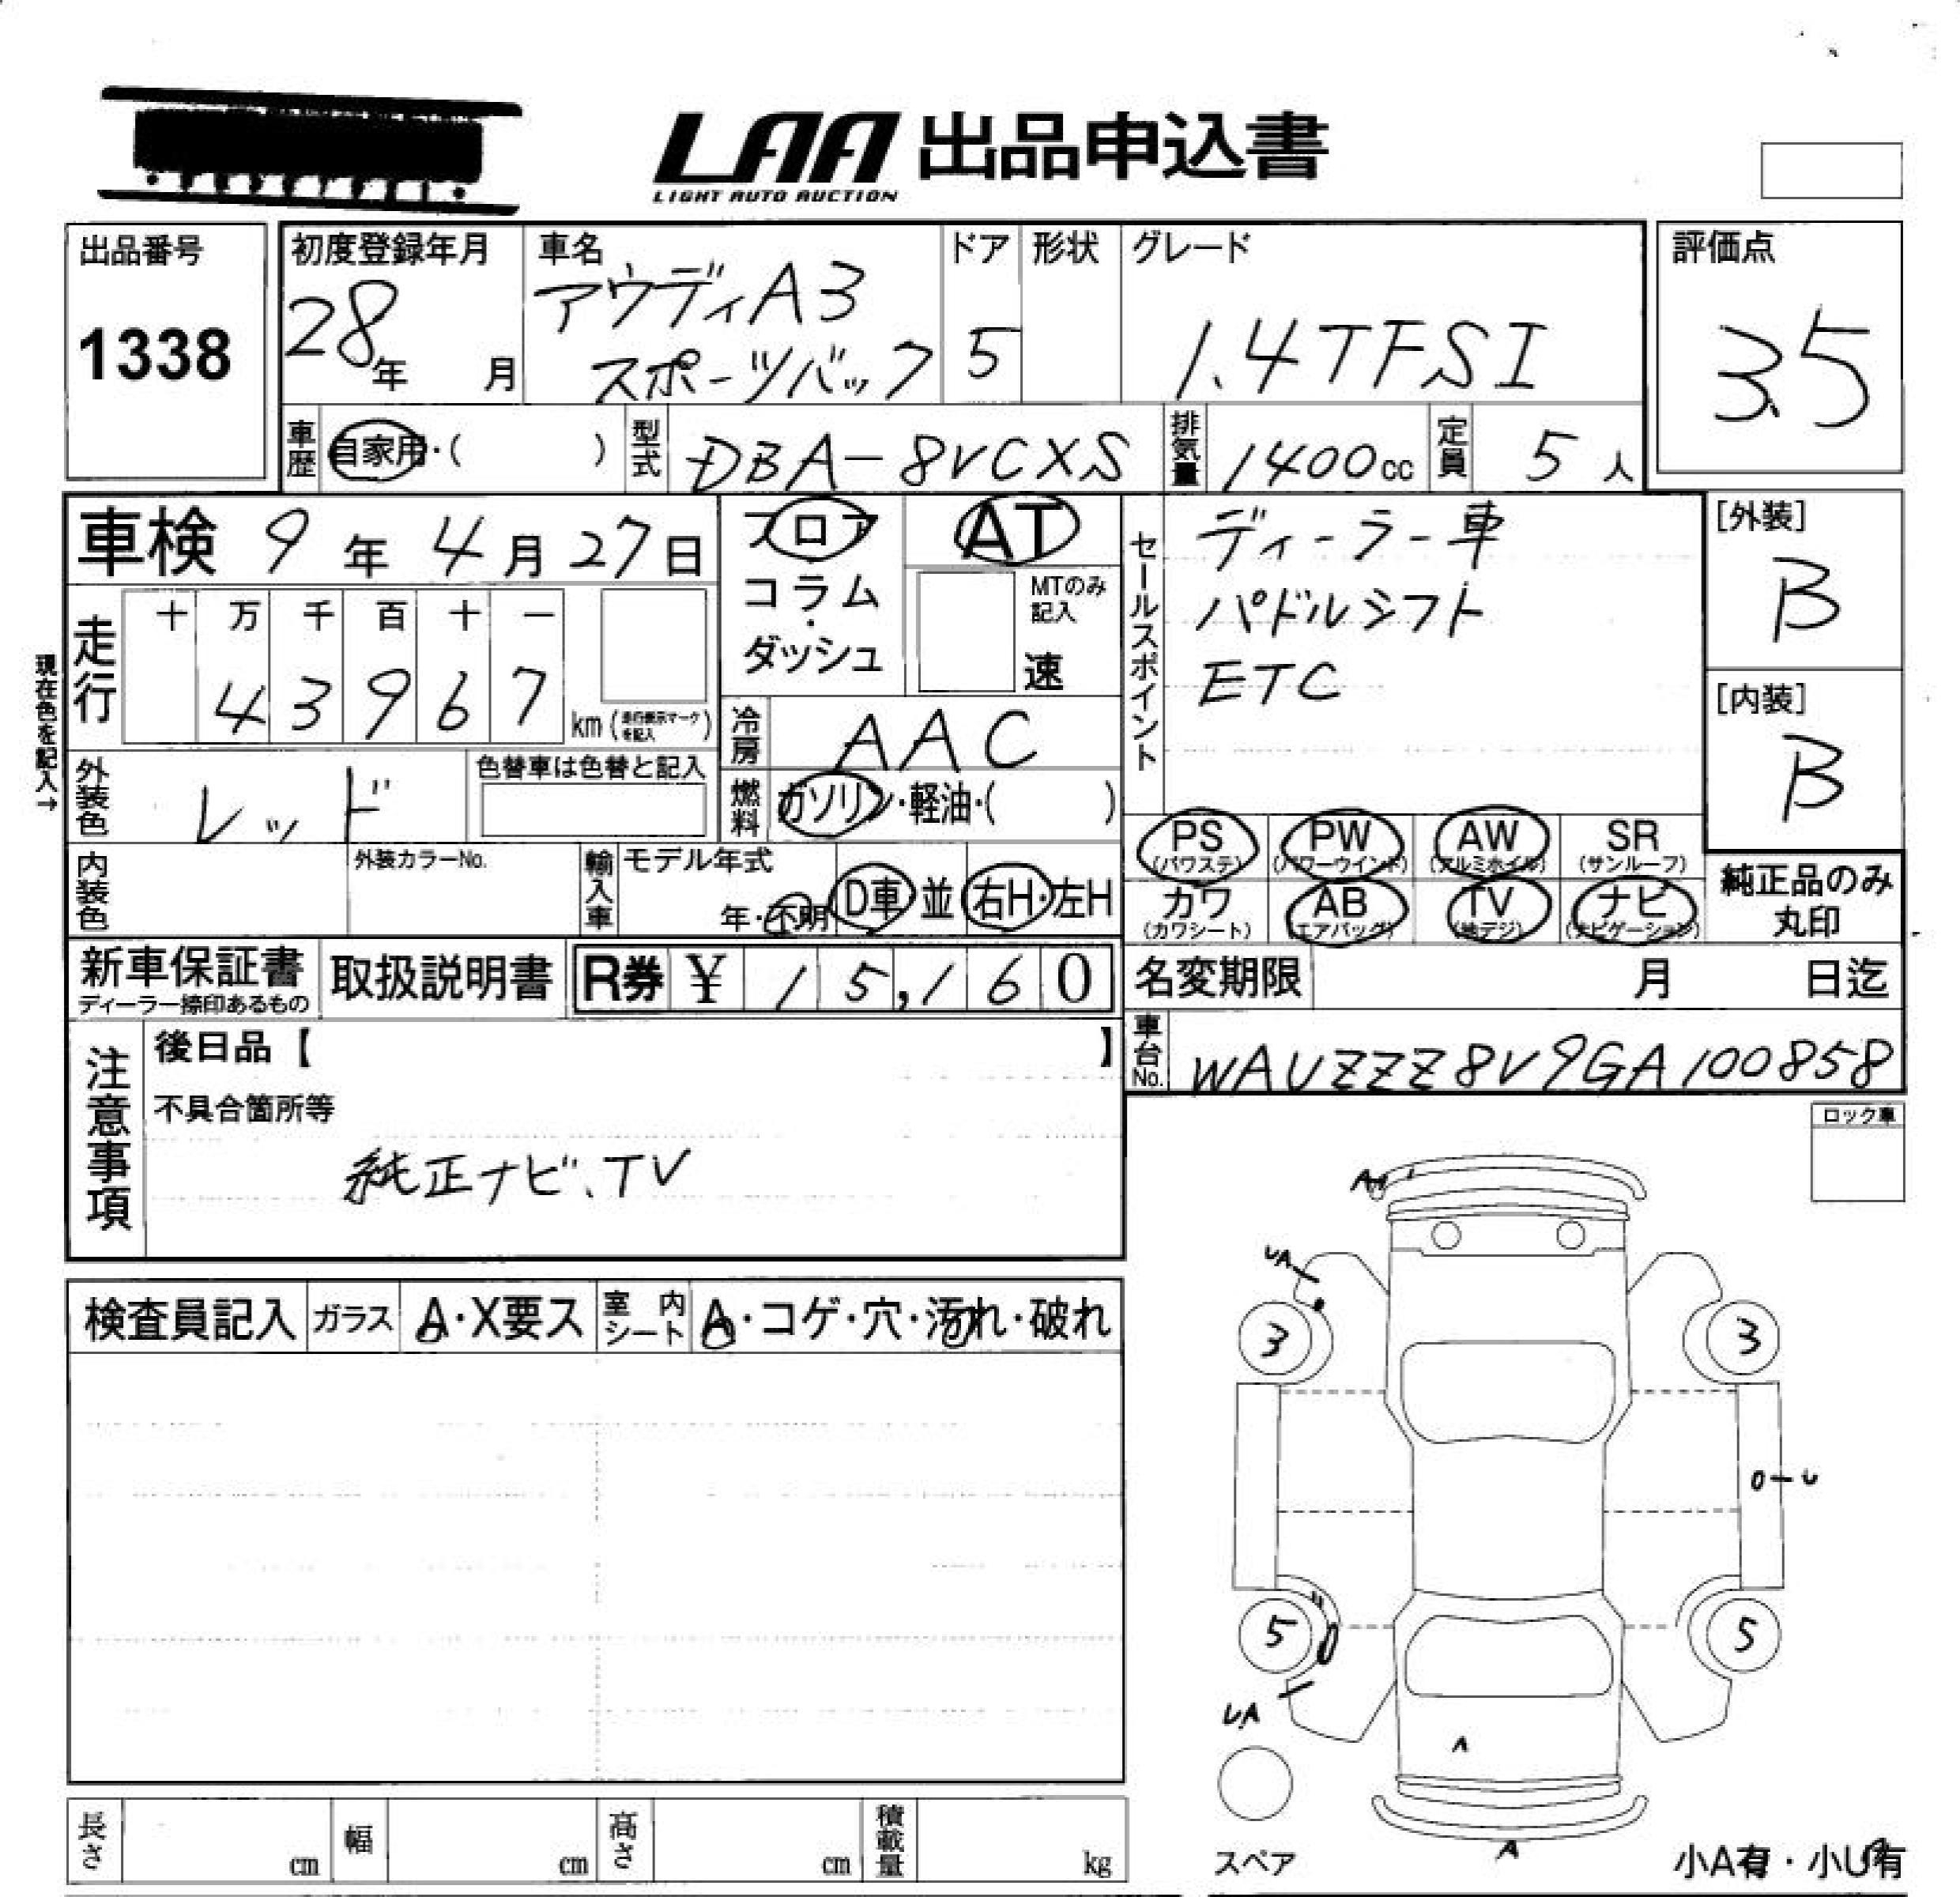 LAA 出品申込書
LIGHT AUTO AUCTION
出品番号
1338
初度登録年月
28年 月
車名
アウディA3
スポーツバック
ドア
5
形状
グレード
1.4TFSI
評価点
3.5
車歴 自家用・( )
型式 DBA-8VCXS
排気量 1400cc
定員 5人
車検 9年4月27日
フロア
コラム
・
ダッシュ
AT
MTのみ
記入
速
セールスポイント
ディーラー車
パドルシフト
ETC
[外装]
B
[内装]
B
現在色を記入→
走行
十 万 千 百 十 一
4 3 9 6 7
km(走行表示マークを記入)
冷房 AAC
外装色 レッド
色替車は色替と記入
燃料 ガソリン・軽油・( )
PS (パワステ)
PW (パワーウインド)
AW (アルミホイル)
SR (サンルーフ)
カワ (カワシート)
AB (エアバッグ)
TV (地デジ)
ナビ (ナビゲーション)
純正品のみ
丸印
内装色
外装カラーNo.
輸入車
モデル年式
年・不明
D車 並
右H・左H
新車保証書
ディーラー捺印あるもの
取扱説明書
R券 ¥ 15,160
名変期限 月 日迄
車台No. WAUZZZ8V9GA100858
注意事項
後日品【 】
不具合箇所等
純正ナビ、TV
ロック車
検査員記入
ガラス A・X要ス
室内シート A・コゲ・穴・汚れ・破れ
A
UA
3
3
U
5
5
UA
A
A
スペア
小A有・小U有
長さ cm
幅 cm
高さ cm
積載量 kg